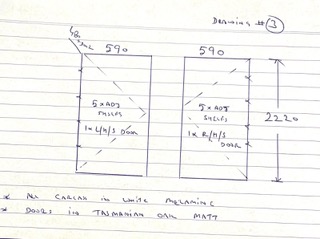 Drawing # 3
590
590
5 x ADJ
SHELFS
1 x L/H/S DOOR
5 x ADJ
SHELFS
1 x R/H/S
DOOR
2220
* ALL CARCAS IN WHITE MELAMINE
* DOORS IN TASMANIAN OAK MATT